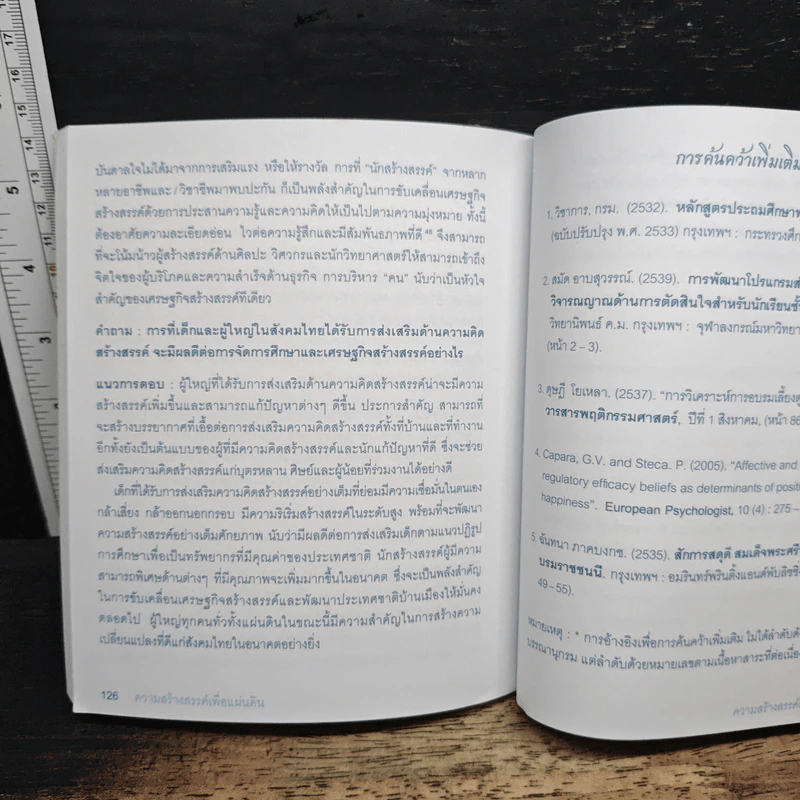 บันดาลใจไม่ได้มาจากการเสริมแรง หรือให้รางวัล การที่ "นักสร้างสรรค์" จากหลาก
หลายอาชีพและ/วิชาชีพมาพบปะกัน ก็เป็นพลังสำคัญในการขับเคลื่อนเศรษฐกิจ
สร้างสรรค์ด้วยการประสานความรู้และความคิดให้เป็นไปตามความมุ่งหมาย ทั้งนี้
ต้องอาศัยความละเอียดอ่อน ไวต่อความรู้สึกและมีสัมพันธภาพที่ดี 48 จึงสามารถ
ที่จะโน้มน้าวผู้สร้างสรรค์ด้านศิลปะ วิศวกรและนักวิทยาศาสตร์ให้สามารถเข้าถึง
จิตใจของผู้บริโภคและความสำเร็จด้านธุรกิจ การบริหาร "คน" นับว่าเป็นหัวใจ
สำคัญของเศรษฐกิจสร้างสรรค์ทีเดียว
คำถาม : การที่เด็กและผู้ใหญ่ในสังคมไทยได้รับการส่งเสริมด้านความคิด
สร้างสรรค์ จะมีผลดีต่อการจัดการศึกษาและเศรษฐกิจสร้างสรรค์อย่างไร
แนวการตอบ : ผู้ใหญ่ที่ได้รับการส่งเสริมด้านความคิดสร้างสรรค์น่าจะมีความ
สร้างสรรค์เพิ่มขึ้นและสามารถแก้ปัญหาต่างๆ ดีขึ้น ประการสำคัญ สามารถที่
จะสร้างบรรยากาศที่เอื้อต่อการส่งเสริมความคิดสร้างสรรค์ทั้งที่บ้านและที่ทำงาน
อีกทั้งยังเป็นต้นแบบของผู้ที่มีความคิดสร้างสรรค์และนักแก้ปัญหาที่ดี ซึ่งจะช่วย
ส่งเสริมความคิดสร้างสรรค์แก่บุตรหลาน ศิษย์และผู้น้อยที่ร่วมงานได้อย่างดี
เด็กที่ได้รับการส่งเสริมความคิดสร้างสรรค์อย่างเต็มที่ย่อมมีความเชื่อมั่นในตนเอง
กล้าเสี่ยง กล้าออกนอกกรอบ มีความริเริ่มสร้างสรรค์ในระดับสูง พร้อมที่จะพัฒนา
ความสร้างสรรค์อย่างเต็มศักยภาพ นับว่ามีผลดีต่อการส่งเสริมเด็กตามแนวปฏิรูป
การศึกษาเพื่อเป็นทรัพยากรที่มีคุณค่าของประเทศชาติ นักสร้างสรรค์ผู้มีความ
สามารถพิเศษด้านต่างๆ ที่มีคุณภาพจะเพิ่มมากขึ้นในอนาคต ซึ่งจะเป็นพลังสำคัญ
ในการขับเคลื่อนเศรษฐกิจสร้างสรรค์และพัฒนาประเทศชาติบ้านเมืองให้มั่นคง
ตลอดไป ผู้ใหญ่ทุกคนทั่วทั้งแผ่นดินในขณะนี้มีความสำคัญในการสร้างความ
เปลี่ยนแปลงที่ดีแก่สังคมไทยในอนาคตอย่างยิ่ง
126 ความสร้างสรรค์เพื่อแผ่นดิน
การค้นคว้าเพิ่มเติม
1. วิชาการ, กรม. (2532). หลักสูตรประถมศึกษาพ
(ฉบับปรับปรุง พ.ศ. 2533) กรุงเทพฯ : กระทรวงศึก
2. สมัด อาบสุวรรณ์. (2539). การพัฒนาโปรแกรมส่
วิจารณญาณด้านการตัดสินใจสำหรับนักเรียนชั้
วิทยานิพนธ์ ค.ม. กรุงเทพฯ : จุฬาลงกรณ์มหาวิทยา
(หน้า 2 – 3).
3. ดุษฎี โยเหลา. (2537). "การวิเคราะห์การอบรมเลี้ยงดู
วารสารพฤติกรรมศาสตร์, ปีที่ 1 สิงหาคม, (หน้า 86
4. Capara, G.V. and Steca. P. (2005). "Affective and
regulatory efficacy beliefs as determinants of positi
happiness". European Psychologist, 10 (4) : 275 –
5. ฉันทนา ภาคบงกช. (2535). สักการสดุดี สมเด็จพระศรี
บรมราชชนนี. กรุงเทพฯ : อมรินทร์พริ้นติ้งแอนด์พับลิชชิ่
49 – 55).
หมายเหตุ : * การอ้างอิงเพื่อการค้นคว้าเพิ่มเติม ไม่ได้ลำดับตั
บรรณานุกรม แต่ลำดับด้วยหมายเลขตามเนื้อหาสาระที่ต่อเนื่อง
ความสร้างสรรค์
17
16
15
14
13
12
11
10
5
4
3